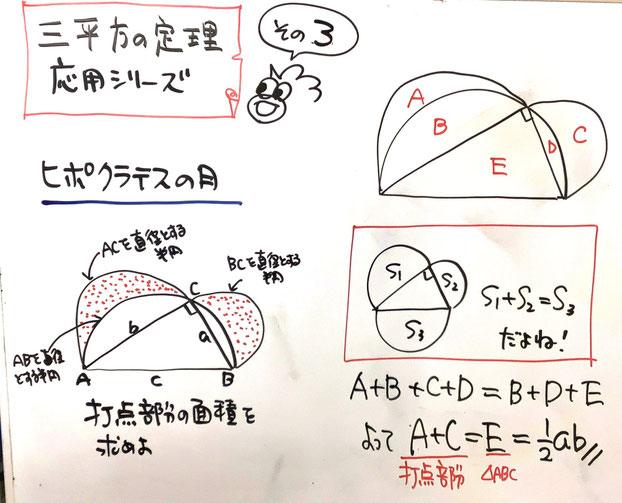 三平方の定理
応用シリーズ
その3
ヒポクラテスの月
ACを直径とする
半円
BCを直径とする
半円
ABを直径
とする半円
A
B
C
b
a
c
打点部分の面積を
求めよ
A
B
C
D
E
S1
S2
S3
S1+S2=S3
だよね!
A+B+C+D=B+D+E
よって A+C=E=1/2ab//
打点部分 △ABC